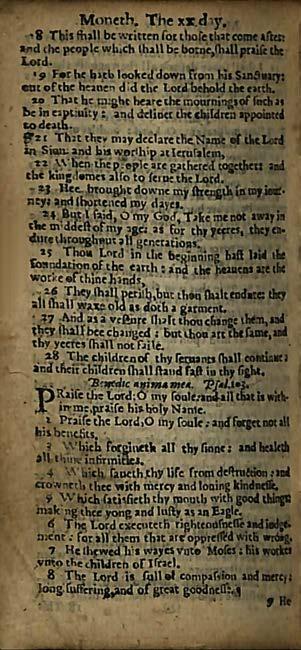 Moneth. The xx. day.
18 This shall be written for those that come after:
and the people which shall be borne, shall praise the
Lord.
19 For he hath looked down from his Sanctuary:
out of the heaven did the Lord behold the earth.
20 That he might heare the mournings of such as
be in captivity: and deliver the children appointed
to death.
21 That they may declare the Name of the Lord
in Sion: and his worship at Ierusalem,
22 When the people are gathered together: and
the kingdomes also to serve the Lord.
23 Hee brought downe my strength in my iour-
ney: and shortened my dayes.
24 But I said, O my God, Take me not away in
the middest of my age: as for thy yeeres, they en-
dure throughout all generations.
25 Thou Lord in the beginning hast laid the
foundation of the earth: and the heavens are the
worke of thine hands,
26 They shall perish, but thou shalt endure: they
all shall waxe old as doth a garment.
27 And as a vesture shalt thou change them, and
they shall bee changed: but thou art the same, and
thy yeeres shall not faile.
28 The children of thy servants shall continue:
and their children shall stand fast in thy sight.
Benedic anima mea. Psal. 103.
PRaise the Lord, O my soule: and all that is with-
in me, praise his holy Name.
2 Praise the Lord, O my soule: and forget not all
his benefits.
3 Which forgiveth all thy sinne: and healeth
all thine infirmities.
4 Which saveth thy life from destruction: and
crowneth thee with mercy and loving kindnesse.
5 Which satisfieth thy mouth with good things:
making thee yong and lusty as an Eagle.
6 The Lord executeth righteousnesse and iudge-
ment: for all them that are oppressed with wrong.
7 He shewed his wayes vnto Moses: his workes
vnto the children of Israel.
8 The Lord is full of compassion and mercy:
long suffering, and of great goodnesse.
9 He